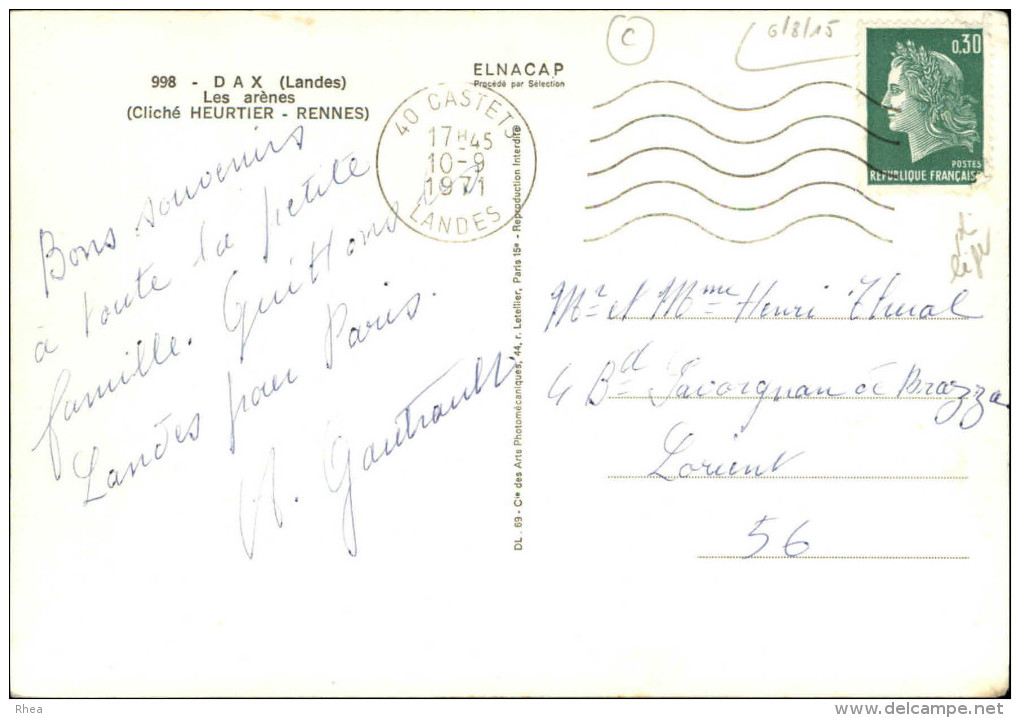 998 - DAX (Landes)
Les arènes
(Cliché HEURTIER - RENNES)
ELNACAP
Procédé par Sélection
C
6/8/15
0,30
POSTES
REPUBLIQUE FRANÇAISE
40 CASTETS
17H45
10-9
1971
LANDES
Bons souvenirs
à toute la petite
famille. Quittons les
Landes pour Paris.
A. Gautrault
DL. 69 - Cie des Arts Photomécaniques, 44, r. Letellier, Paris 15e - Reproduction Interdite
Mr et Mme Henri
4 Bd Savorgnan de Brazza
Lorient
56
Rhea
www.delcampe.net